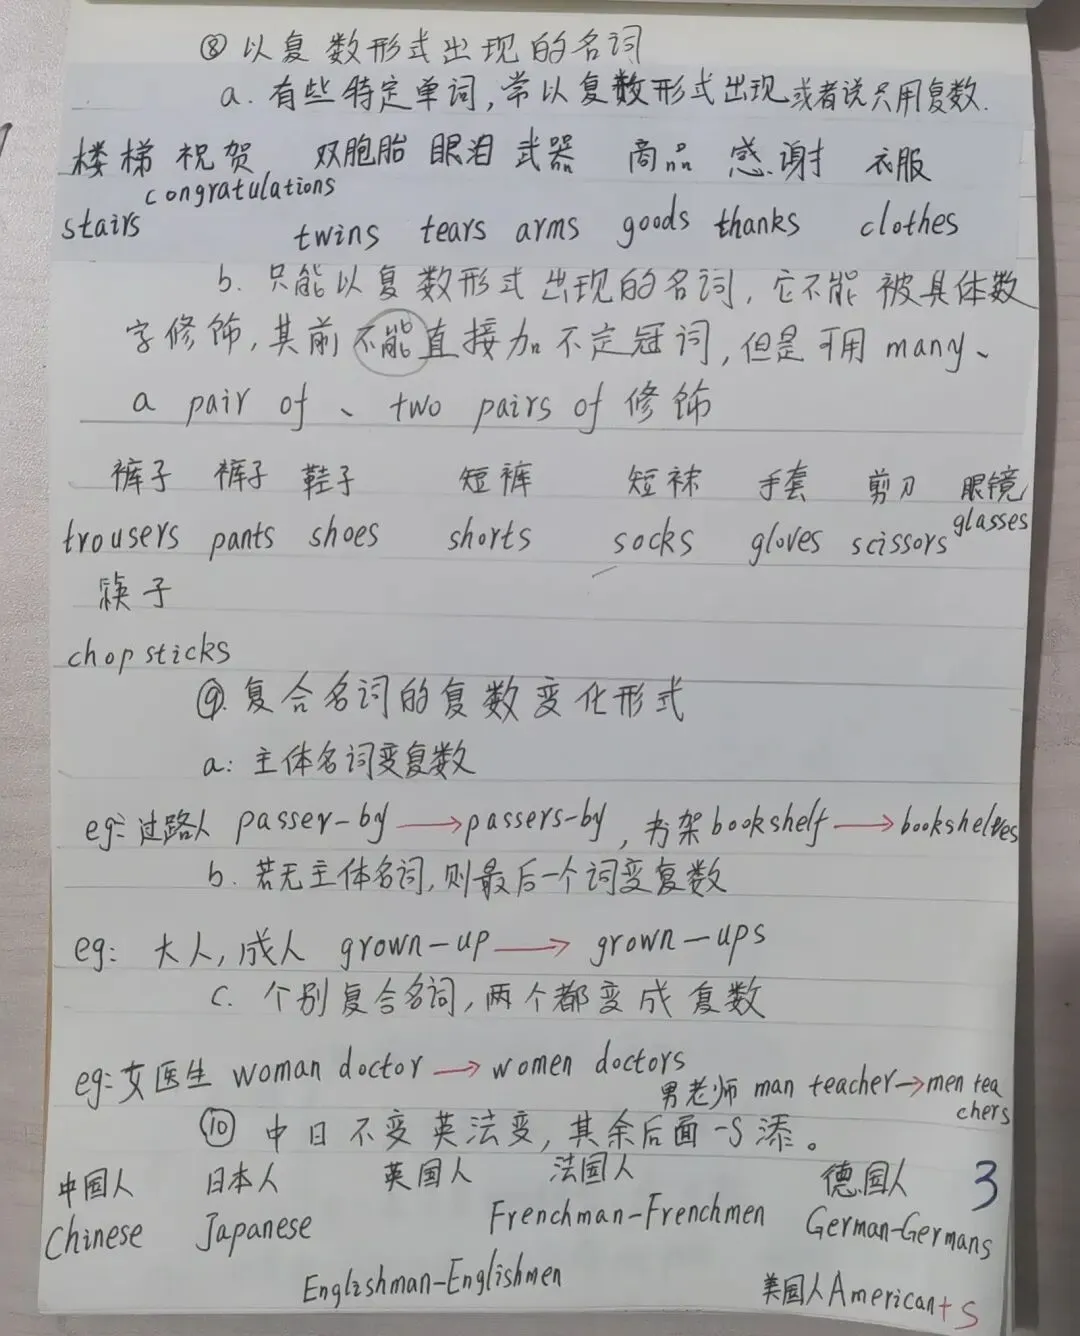 ⑧ 以复数形式出现的名词
a. 有些特定单词,常以复数形式出现或者说只用复数.
楼梯 祝贺 双胞胎 眼泪 武器 商品 感谢 衣服
stairs congratulations twins tears arms goods thanks clothes
b. 只能以复数形式出现的名词, 它不能被具体数
字修饰,其前不能直接加不定冠词,但是可用 many、
a pair of 、 two pairs of 修饰
裤子 裤子 鞋子 短裤 短袜 手套 剪刀 眼镜
trousers pants shoes shorts socks gloves scissors glasses
筷子
chopsticks
⑨ 复合名词的复数变化形式
a: 主体名词变复数
eg: 过路人 passer-by → passers-by , 书架 bookshelf → bookshelves
b. 若无主体名词,则最后一个词变复数
eg: 大人,成人 grown-up → grown-ups
c. 个别复合名词,两个都变成复数
eg: 女医生 woman doctor → women doctors
男老师 man teacher → men tea
chers
⑩ 中日不变英法变,其余后面-S添。
中国人 日本人 英国人 法国人 德国人 3
Chinese Japanese Frenchman-Frenchmen German-Germans
Englishman-Englishmen 美国人 American+s